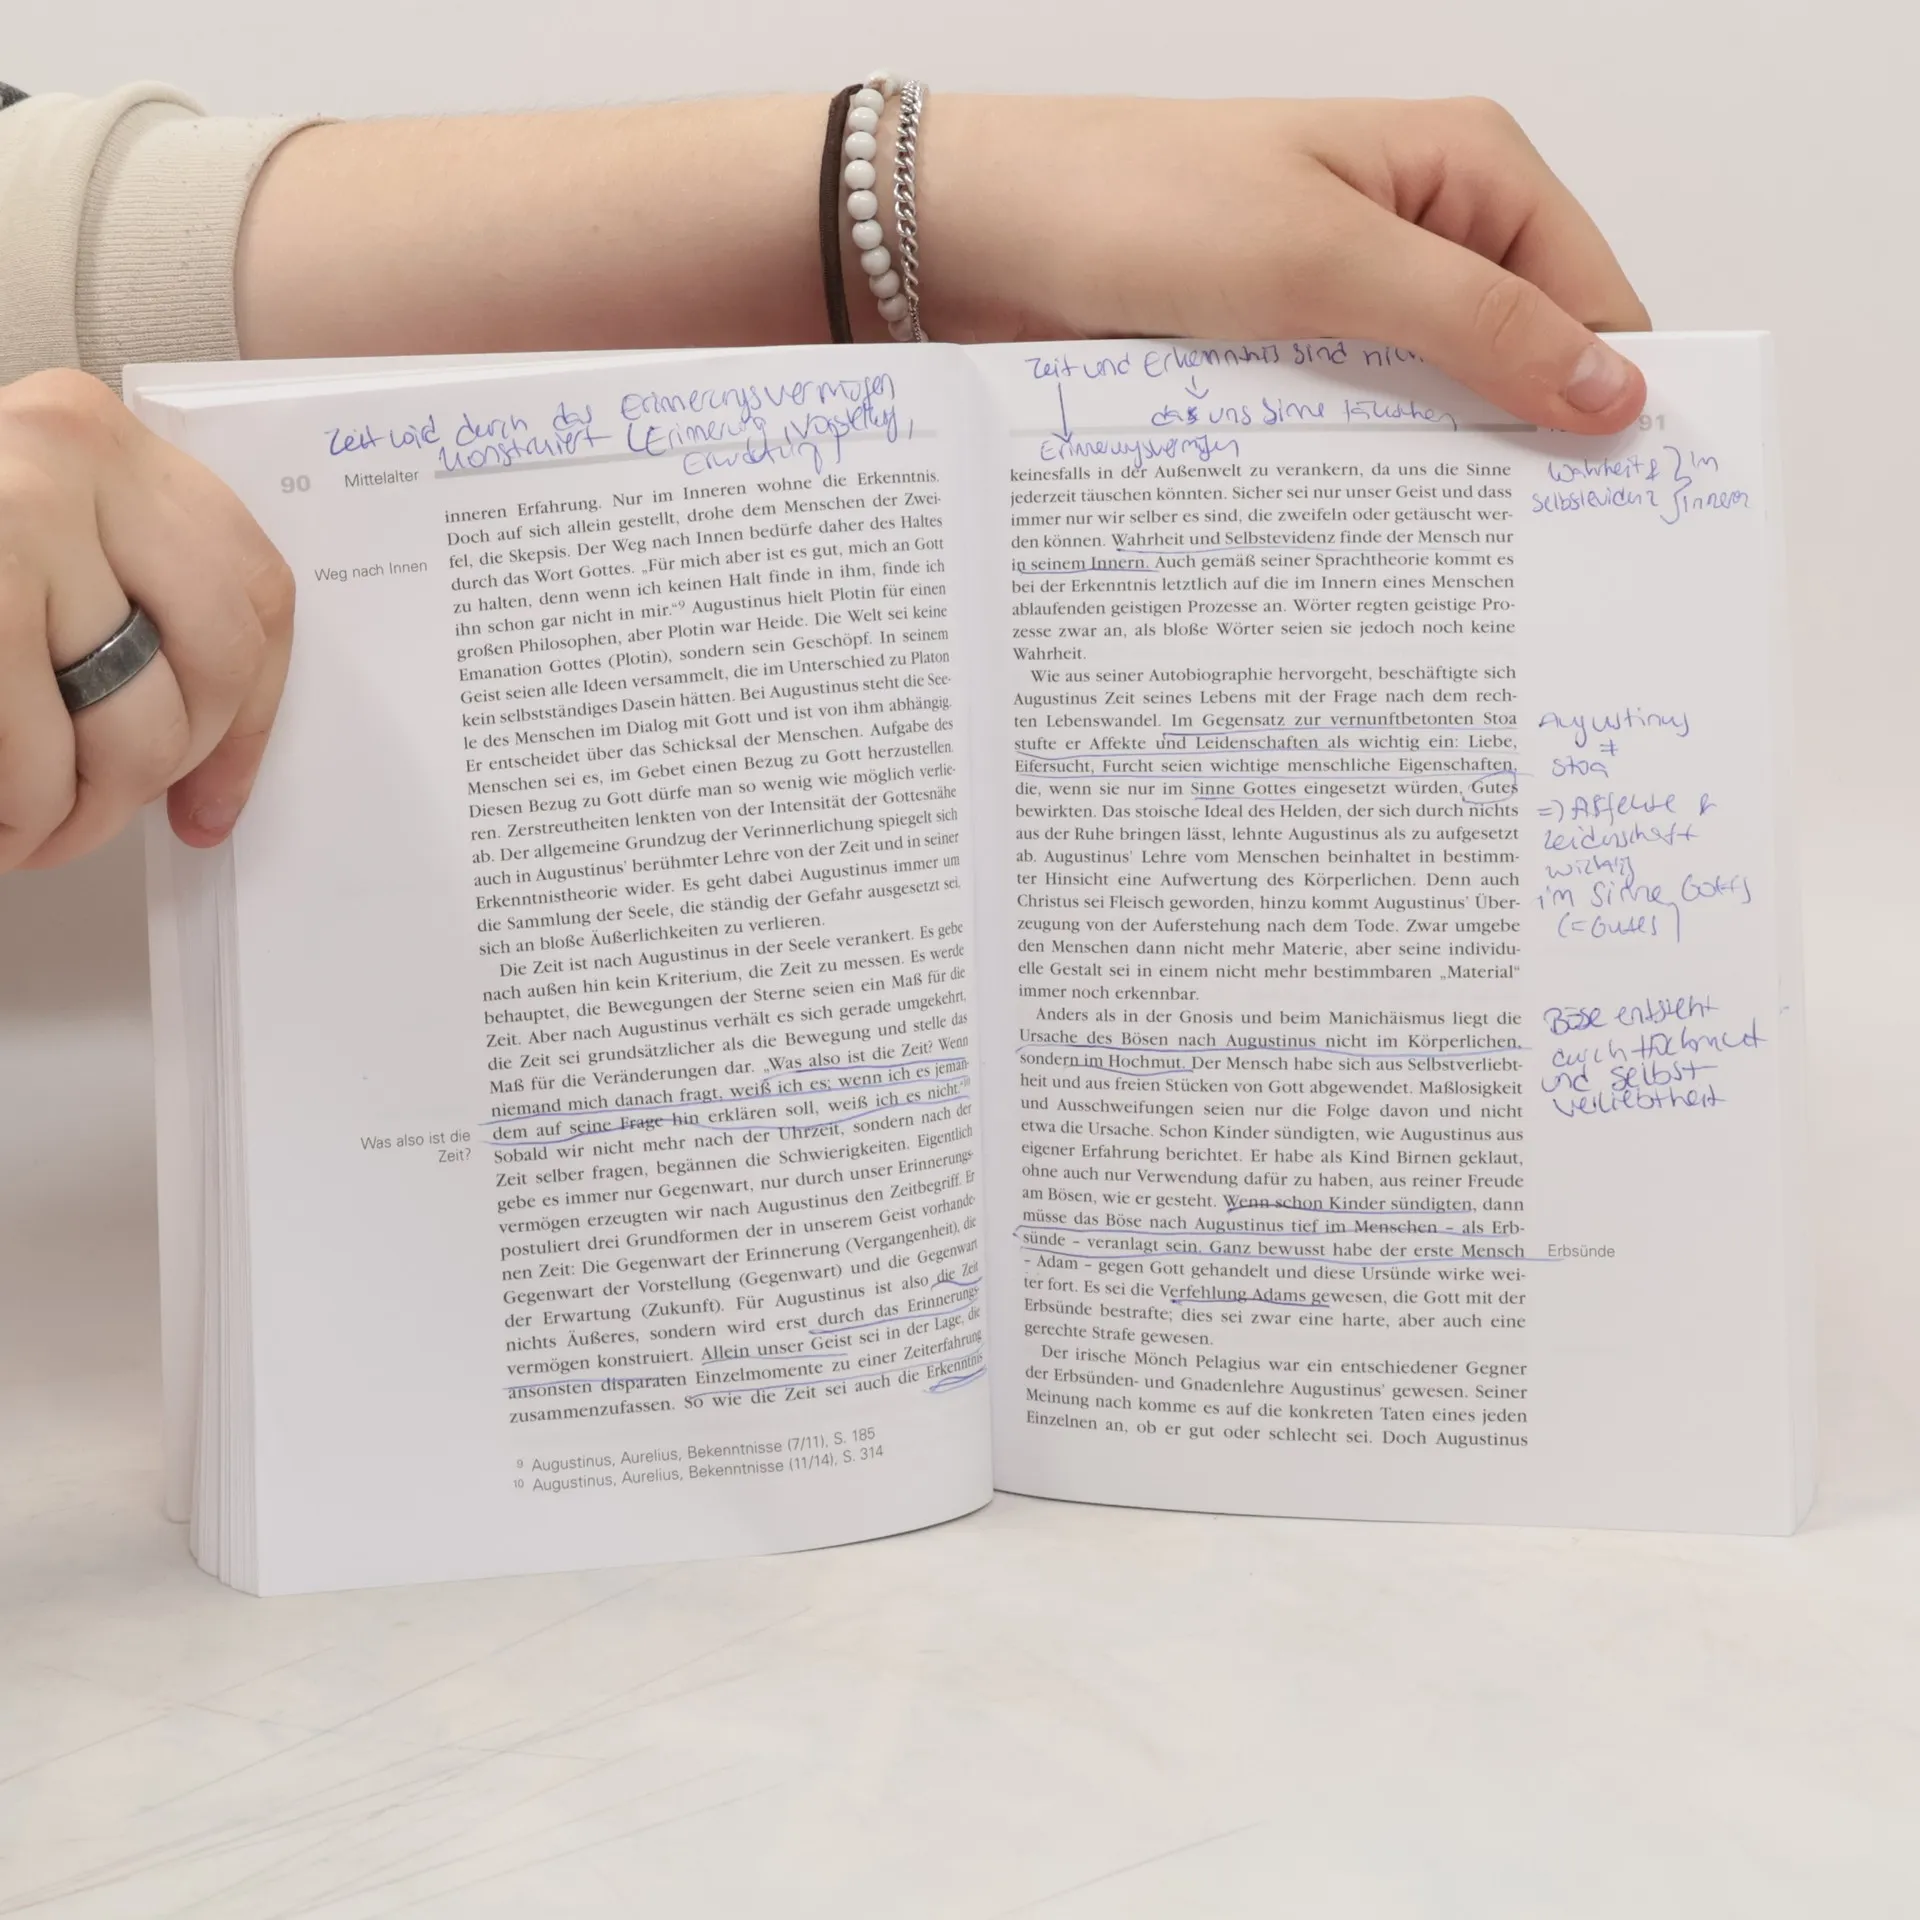 Zeit wird durch das Erinnerungsvermögen
konstruiert (Erinnerung, Vorstellung,
Erwartung)
90 Mittelalter
inneren Erfahrung. Nur im Inneren wohne die Erkenntnis.
Doch auf sich allein gestellt, drohe dem Menschen der Zwei-
fel, die Skepsis. Der Weg nach Innen bedürfe daher des Haltes
Weg nach Innen
durch das Wort Gottes. „Für mich aber ist es gut, mich an Gott
zu halten, denn wenn ich keinen Halt finde in ihm, finde ich
ihn schon gar nicht in mir.“⁹ Augustinus hielt Plotin für einen
großen Philosophen, aber Plotin war Heide. Die Welt sei keine
Emanation Gottes (Plotin), sondern sein Geschöpf. In seinem
Geist seien alle Ideen versammelt, die im Unterschied zu Platon
kein selbstständiges Dasein hätten. Bei Augustinus steht die See-
le des Menschen im Dialog mit Gott und ist von ihm abhängig.
Er entscheidet über das Schicksal der Menschen. Aufgabe des
Menschen sei es, im Gebet einen Bezug zu Gott herzustellen.
Diesen Bezug zu Gott dürfe man so wenig wie möglich verlie-
ren. Zerstreutheiten lenkten von der Intensität der Gottesnähe
ab. Der allgemeine Grundzug der Verinnerlichung spiegelt sich
auch in Augustinus’ berühmter Lehre von der Zeit und in seiner
Erkenntnistheorie wider. Es geht dabei Augustinus immer um
die Sammlung der Seele, die ständig der Gefahr ausgesetzt sei,
sich an bloße Äußerlichkeiten zu verlieren.
Die Zeit ist nach Augustinus in der Seele verankert. Es gebe
nach außen hin kein Kriterium, die Zeit zu messen. Es werde
behauptet, die Bewegungen der Sterne seien ein Maß für die
Zeit. Aber nach Augustinus verhält es sich gerade umgekehrt,
die Zeit sei grundsätzlicher als die Bewegung und stelle das
Maß für die Veränderungen dar. „Was also ist die Zeit? Wenn
niemand mich danach fragt, weiß ich es; wenn ich es jeman-
dem auf seine Frage hin erklären soll, weiß ich es nicht.“¹⁰
Was also ist die
Zeit?
Sobald wir nicht mehr nach der Uhrzeit, sondern nach der
Zeit selber fragen, begännen die Schwierigkeiten. Eigentlich
gebe es immer nur Gegenwart, nur durch unser Erinnerungs-
vermögen erzeugten wir nach Augustinus den Zeitbegriff. Er
postuliert drei Grundformen der in unserem Geist vorhande-
nen Zeit: Die Gegenwart der Erinnerung (Vergangenheit), die
Gegenwart der Vorstellung (Gegenwart) und die Gegenwart
der Erwartung (Zukunft). Für Augustinus ist also die Zeit
nichts Äußeres, sondern wird erst durch das Erinnerungs-
vermögen konstruiert. Allein unser Geist sei in der Lage, die
ansonsten disparaten Einzelmomente zu einer Zeiterfahrung
zusammenzufassen. So wie die Zeit sei auch die Erkenntnis
⁹ Augustinus, Aurelius, Bekenntnisse (7/11), S. 185
¹⁰ Augustinus, Aurelius, Bekenntnisse (11/14), S. 314
Zeit und Erkenntnis sind
das uns Sinne täuschen
Erinnerungsvermögen
91
keinesfalls in der Außenwelt zu verankern, da uns die Sinne
jederzeit täuschen könnten. Sicher sei nur unser Geist und dass
immer nur wir selber es sind, die zweifeln oder getäuscht wer-
den können. Wahrheit und Selbstevidenz finde der Mensch nur
in seinem Innern. Auch gemäß seiner Sprachtheorie kommt es
bei der Erkenntnis letztlich auf die im Innern eines Menschen
ablaufenden geistigen Prozesse an. Wörter regten geistige Pro-
zesse zwar an, als bloße Wörter seien sie jedoch noch keine
Wahrheit.
Wie aus seiner Autobiographie hervorgeht, beschäftigte sich
Augustinus Zeit seines Lebens mit der Frage nach dem rech-
ten Lebenswandel. Im Gegensatz zur vernunftbetonten Stoa
stufte er Affekte und Leidenschaften als wichtig ein: Liebe,
Eifersucht, Furcht seien wichtige menschliche Eigenschaften,
die, wenn sie nur im Sinne Gottes eingesetzt würden, Gutes
bewirkten. Das stoische Ideal des Helden, der sich durch nichts
aus der Ruhe bringen lässt, lehnte Augustinus als zu aufgesetzt
ab. Augustinus’ Lehre vom Menschen beinhaltet in bestimm-
ter Hinsicht eine Aufwertung des Körperlichen. Denn auch
Christus sei Fleisch geworden, hinzu kommt Augustinus’ Über-
zeugung von der Auferstehung nach dem Tode. Zwar umgebe
den Menschen dann nicht mehr Materie, aber seine individu-
elle Gestalt sei in einem nicht mehr bestimmbaren „Material“
immer noch erkennbar.
Anders als in der Gnosis und beim Manichäismus liegt die
Ursache des Bösen nach Augustinus nicht im Körperlichen,
sondern im Hochmut. Der Mensch habe sich aus Selbstverliebt-
heit und aus freien Stücken von Gott abgewendet. Maßlosigkeit
und Ausschweifungen seien nur die Folge davon und nicht
etwa die Ursache. Schon Kinder sündigten, wie Augustinus aus
eigener Erfahrung berichtet. Er habe als Kind Birnen geklaut,
ohne auch nur Verwendung dafür zu haben, aus reiner Freude
am Bösen, wie er gesteht. Wenn schon Kinder sündigten, dann
müsse das Böse nach Augustinus tief im Menschen – als Erb-
sünde – veranlagt sein. Ganz bewusst habe der erste Mensch
– Adam – gegen Gott gehandelt und diese Ursünde wirke wei-
ter fort. Es sei die Verfehlung Adams gewesen, die Gott mit der
Erbsünde bestrafte; dies sei zwar eine harte, aber auch eine
gerechte Strafe gewesen.
Der irische Mönch Pelagius war ein entschiedener Gegner
der Erbsünden- und Gnadenlehre Augustinus’ gewesen. Seiner
Meinung nach komme es auf die konkreten Taten eines jeden
Einzelnen an, ob er gut oder schlecht sei. Doch Augustinus
Wahrheit & } im
Selbstevidenz } Inneren
Augustinus
≠
Stoa
=> Affekte &
Leidenschaft
wichtig
im Sinne Gottes
(=Gutes)
Böse entsteht
durch Hochmut
und Selbst-
verliebtheit
Erbsünde